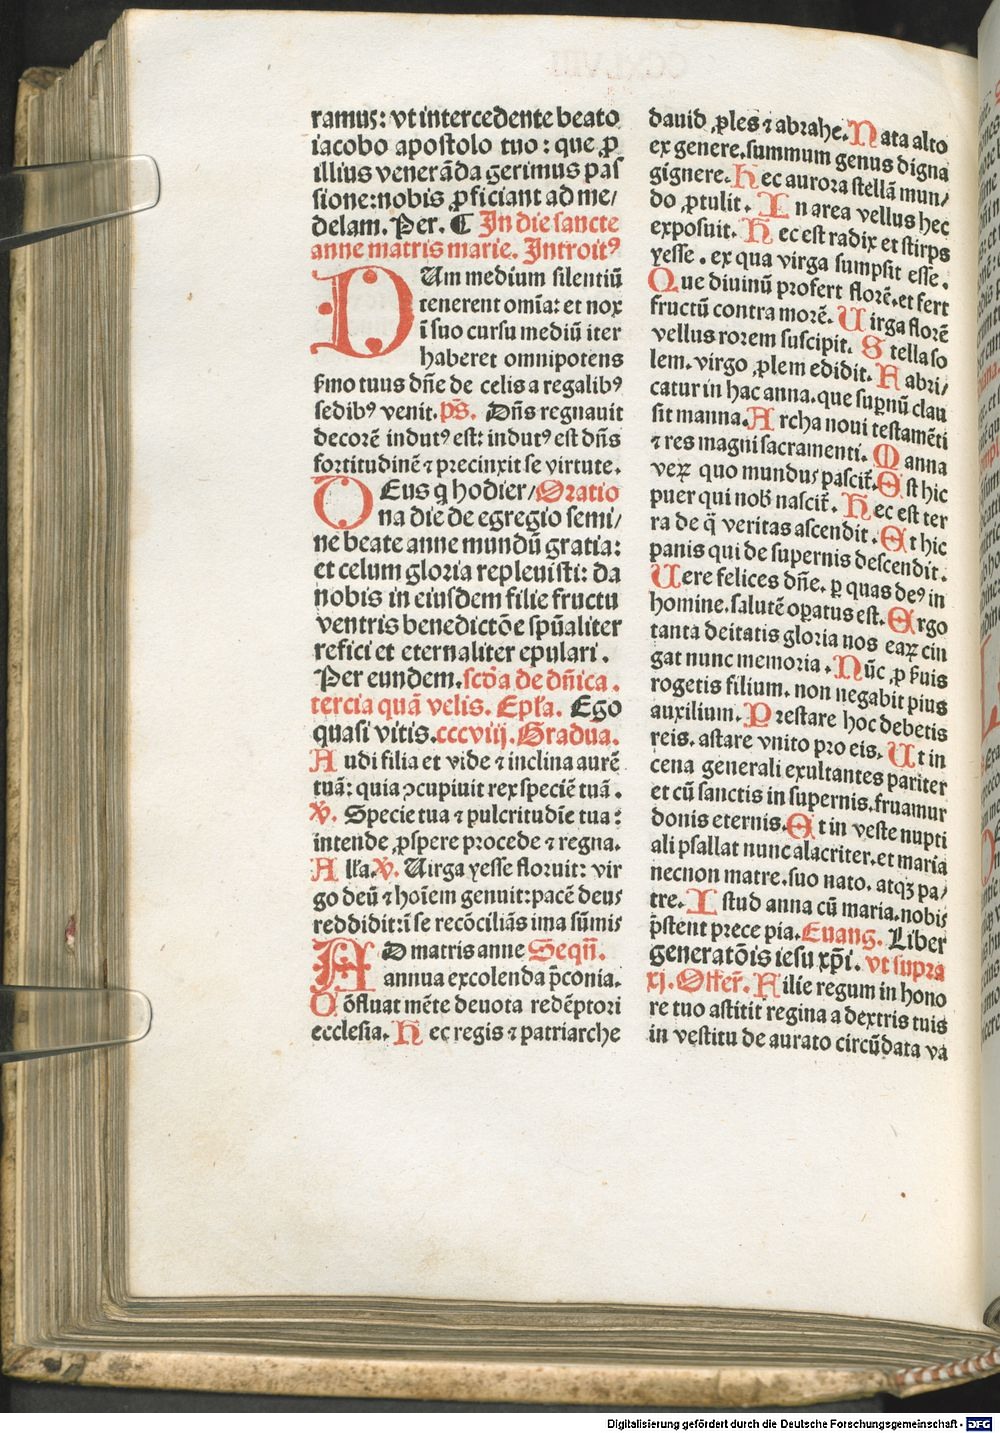 ramus: vt intercedente beato
iacobo apostolo tuo: que ꝓ
illius venerāda gerimus pas
sione: nobis ꝓficiant ad me/
delam. Per. ¶ In die sancte
anne matris marie. Introitꝰ
DUm medium silentiū
tenerent omīa: et nox
ī suo cursu mediū iter
haberet omnipotens
ẜmo tuus dn̄e de celis a regalibꝰ
sedibꝰ venit. ps̄. Dn̄s regnauit
decorē indutꝰ est: indutꝰ est dn̄s
fortitudinē ⁊ precinxit se virtute.
DEus q̄ hodier/ Oratio
na die de egregio semi/
ne beate anne mundū gratia:
et celum gloria repleuisti: da
nobis in eiusdem filie fructu
ventris benedictōe spūaliter
refici et eternaliter epulari.
Per eundem. scd̄a de dn̄ica.
tercia quā velis. Epl̄a. Ego
quasi vitis. cccviij. Gradua.
Audi filia et vide ⁊ inclina aurē
tuā: quia ɔcupiuit rex speciē tuā.
℣. Specie tua ⁊ pulcritudīe tua:
intende ꝓspere procede ⁊ regna.
All'a. ℣. Uirga yesse floruit: vir
go deū ⁊ hoīem genuit: pacē deus
reddidit: ī se recōciliās ima sūmis
AD matris anne Seqn̄.
annua excolenda p̄conia.
Cōfluat mēte deuota redēptori
ecclesia. Hec regis ⁊ patriarche
dauid ꝓles ⁊ abrahe. Nata alto
ex genere. summum genus digna
gignere. Hec aurora stellā mun/
do ꝓtulit. In area vellus hec
exposuit. Hec est radix et stirps
yesse. ex qua virga sumpsit esse.
Que diuinū profert florē. et fert
fructū contra morē. Uirga florē
vellus rorem suscipit. Stella so
lem. virgo ꝓlem edidit. Fabri/
catur in hac anna. que suꝑnū clau
sit manna. Archa noui testamēti
⁊ res magni sacramenti. Manna
veꝝ quo mundus pascit̄. Est hic
puer qui nob̄ nascit̄. Hec est ter
ra de q̄ veritas ascendit. Et hic
panis qui de supernis descendit.
Uere felices dn̄e. ꝑ quas deꝰ in
homine. salutē oꝑatus est. Ergo
tanta deitatis gloria nos eaꝝ cin
gat nunc memoria. Nūc ꝓ ẜuis
rogetis filium. non negabit pius
auxilium. Prestare hoc debetis
reis. astare vnito pro eis. Ut in
cena generali exultantes pariter
et cū sanctis in supernis. fruamur
donis eternis. Et in veste nupti
ali psallat nunc alacriter. et maria
necnon matre. suo nato. atqꝫ pa/
tre. Istud anna cū maria. nobis
p̄stent prece pia. Euang. Liber
generatōis iesu xp̄i. vt supra
xj. Offer̄. Filie regum in hono
re tuo astitit regina a dextris tuis
in vestitu de aurato circūdata va
Digitalisierung gefördert durch die Deutsche Forschungsgemeinschaft - DFG